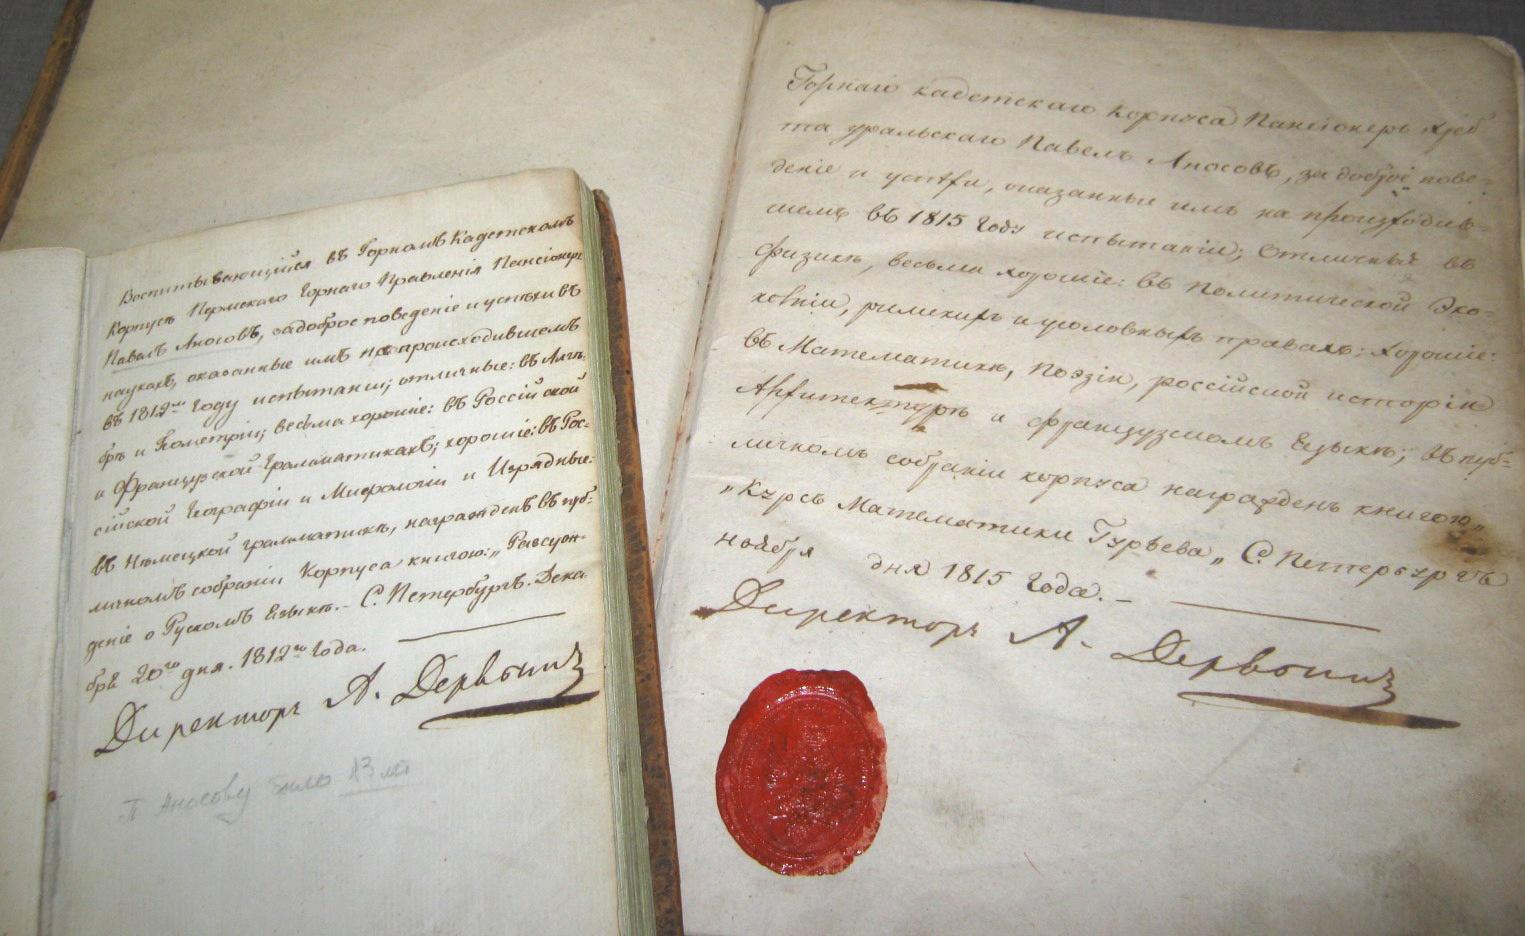 Воспитывающійся въ Горномъ Кадетскомъ
Корпусѣ Пермскаго Горнаго Правленія Пансіонеръ
Павелъ Аносовъ, за доброе поведеніе и успѣхи въ
наукахъ, оказанные имъ на происходившемъ
въ 1812мъ году испытаніи; отличные: въ Алге-
брѣ и Геометріи; весьма хорошіе: въ Россійской
и Французской Грамматикахъ; хорошіе: въ Рос-
сійской Географіи и Мифологіи и Изрядные:
въ Нѣмецкой грамматикѣ, награжденъ въ пуб-
личномъ собраніи Корпуса книгою: „Разсуж-
деніе о Рускомъ Языкѣ. – С. Петербургъ. Дека-
бря 20го дня. 1812го Года.
Директоръ А. Дерябинъ
П Аносову было 13 лѣт
Горнаго кадетскаго Корпуса Пансіонеръ хреб-
та уральскаго Павелъ Аносовъ, за доброе пове-
деніе и успѣхи, оказанные имъ на происходив-
шемъ въ 1815 Году испытаніи; Отличные въ
Физикѣ, весьма хорошіе: въ Политической Эко-
номіи, римскихъ и уголовныхъ правахъ; хорошіе:
въ Математикѣ, Поэзіи, россійской исторіи
Архитектурѣ и французскомъ Языкѣ; въ пуб-
личномъ собраніи корпуса награжденъ книгою„
„Курсъ Математики Гурьева„ С. Петербургъ
ноября дня 1815 Года. –
Директоръ А. Дерябинъ